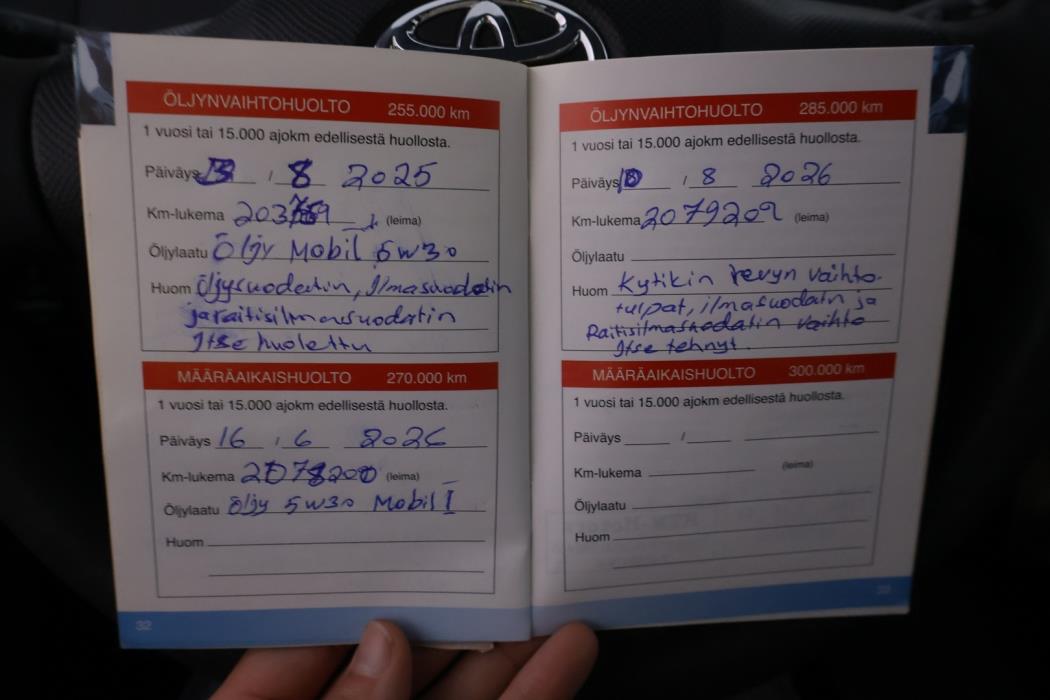 ÖLJYNVAIHTOHUOLTO 255.000 km
1 vuosi tai 15.000 ajokm edellisestä huollosta.
Päiväys / 8 2025
Km-lukema (leima)
Öljylaatu Öljy Mobil 5w30
Huom Öljysuodatin, Ilmasuodatin
ja raitisilmansuodatin
Itse huolettu
MÄÄRÄAIKAISHUOLTO 270.000 km
1 vuosi tai 15.000 ajokm edellisestä huollosta.
Päiväys 16 / 6 2026
Km-lukema (leima)
Öljylaatu öljy 5w30 Mobil I
Huom
32
ÖLJYNVAIHTOHUOLTO 285.000 km
1 vuosi tai 15.000 ajokm edellisestä huollosta.
Päiväys 10 / 8 2026
Km-lukema 2079202 (leima)
Öljylaatu
Huom Kytikin revyn vaihto.
tulpat, ilmasuodatn ja
Raitisilmasuodatin vaihto
Itse tehnyt.
MÄÄRÄAIKAISHUOLTO 300.000 km
1 vuosi tai 15.000 ajokm edellisestä huollosta.
Päiväys /
Km-lukema (leima)
Öljylaatu
Huom
33